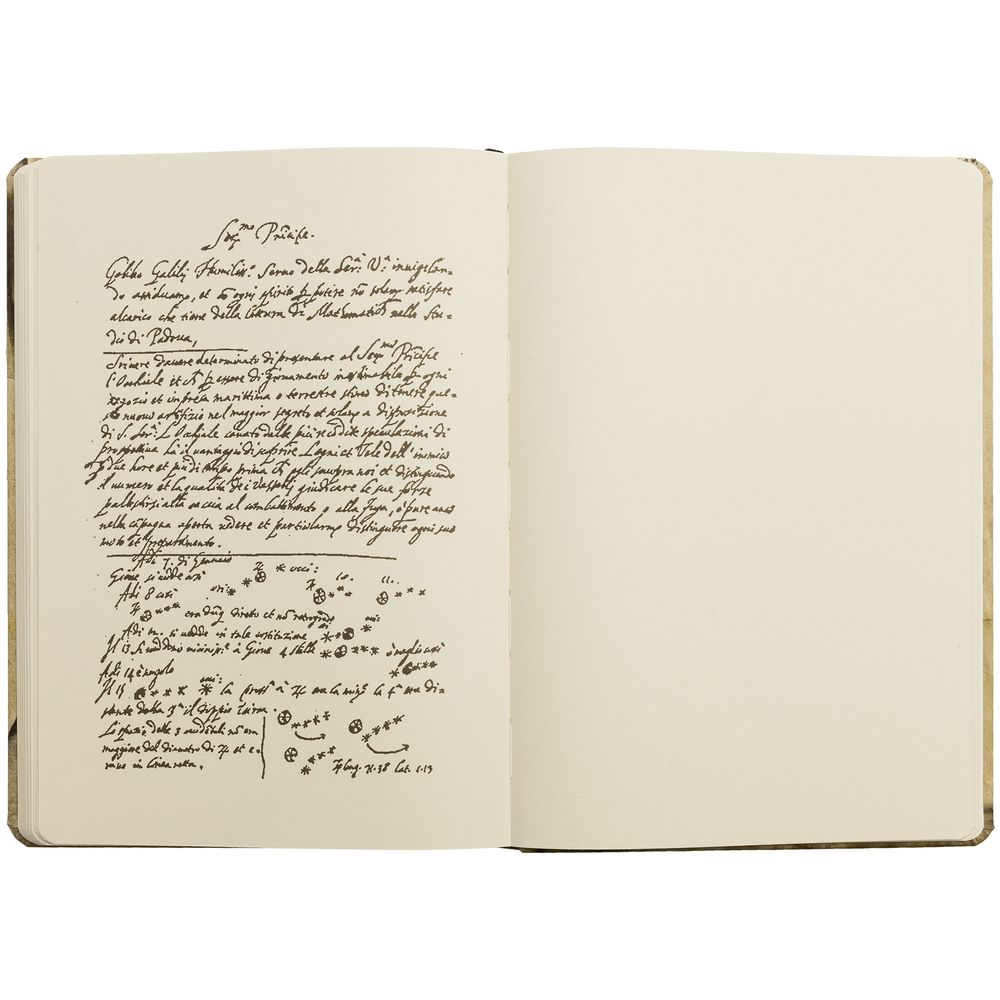 Ser.mo Prīcipe.
Galileo Galilej Humiliss.o Servo della Ser.a V.a inuigilan-
do assiduam.te, et cō ogni spirito p potere nō solam.te satisfare
al carico che tiene della lettura di Mathematich nello Stu-
dio di Padova,
Scrivere d'auere determinato di presentare al Ser.mo Prīcipe
l'Occhiale et p essere di giouamento inestimabile p ogni
negozio et impresa marittima o terrestre stimo di tenere que-
sto nuouo artifizio nel maggior segreto et solam a disposizione
di S. Ser.a L'Occhiale cauato dalle più recōdite speculazioni di
prospettiva hà il uantaggio di scoprire Legni et Vele dell'inimico
p due hore et più di tempo prima ch egli scuopra noi et distinguendo
il numero et la qualità de i Vasselli giudicare le sue forze
pallestirsi alla caccia al combattimento o alla fuga, o pure anco
nella cāpagna aperta uedere et particolarm distinguere ogni suo
moto et preparamento.
Adi 7. di Gennaio
Gioue si uede cosi ♃ * occi:
Adi 8 cosi ori: * ♃ 10. 11.
♃ * * * era dūq diretto et nō retrogrado
Adi 12. si uedde in tale costituzione * *
Il 13 si ueddono uicinis.e à Gioue 4 stelle * * * * ò meglio cosi
Adi 14 è nugolo * * * *
Il 15 * * * * la pross.a à ♃ era la min.e la 4.a era di-
stante dalla 3.a il doppio īcirca.
Lo spazio delle 3 occidētali nō era
maggiore del diametro di ♃ et e-
rano in linea retta.
♃ long. 71.38 lat. 1.13